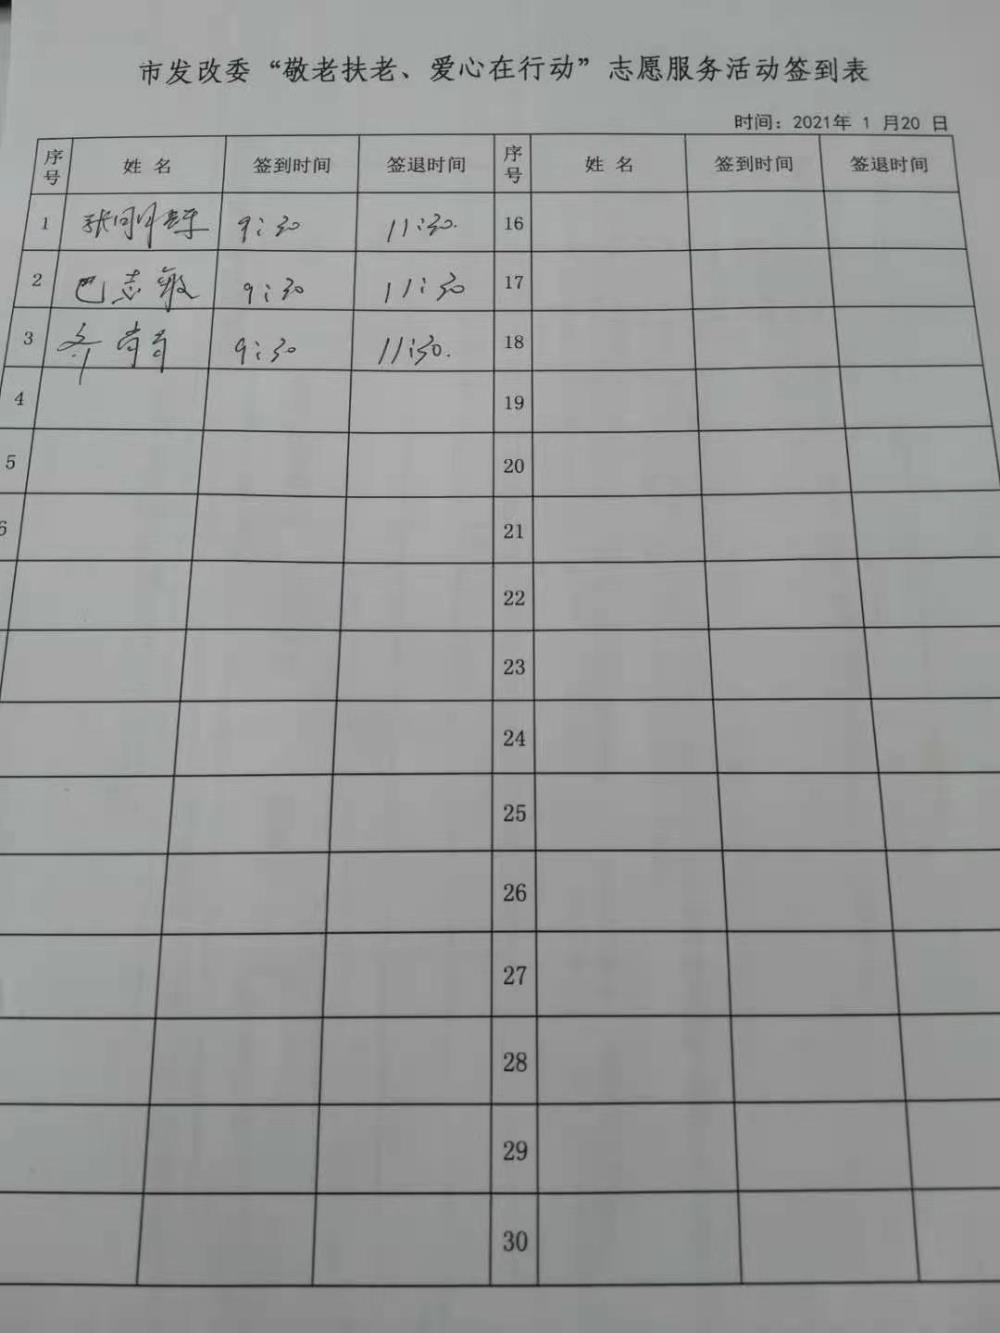 市发改委“敬老扶老、爱心在行动”志愿服务活动签到表
时间：2021年 1 月20 日
序号 姓 名 签到时间 签退时间 序号 姓 名 签到时间 签退时间
1 9:30 11:30. 16
2 巴志敏 9:30 11:30 17
3 9:30 11:30. 18
4 19
5 20
6 21
22
23
24
25
26
27
28
29
30